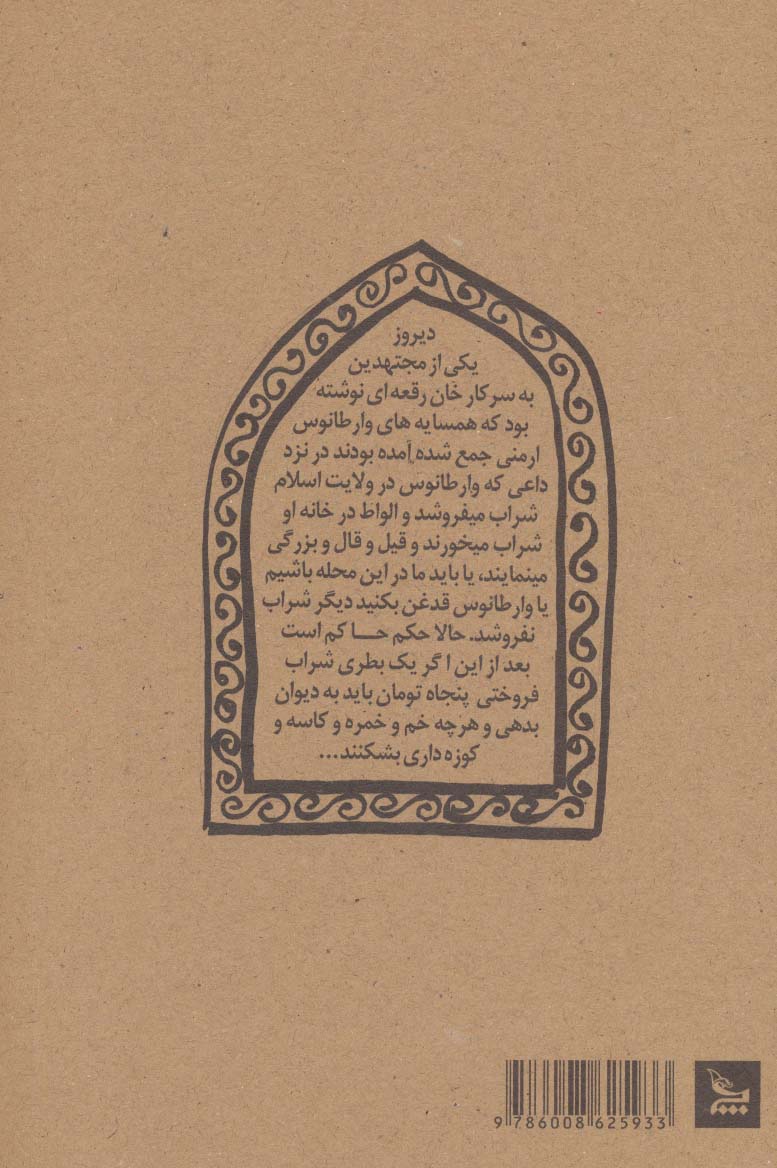 دیروز
یکی از مجتهدین
به سرکار خان رقعه ای نوشته
بود که همسایه های وارطانوس
ارمنی جمع شده آمده بودند در نزد
داعی که وارطانوس در ولایت اسلام
شراب میفروشد و الواط در خانه او
شراب میخورند و قیل و قال و بزرگی
مینمایند، یا باید ما در این محله باشیم
یا وارطانوس قدغن بکنید دیگر شراب
نفروشد. حالا حکم حاکم است
بعد از این اگر یک بطری شراب
فروختی پنجاه تومان باید به دیوان
بدهی و هرچه خم و خمره و کاسه و
کوزه داری بشکنند...
9 786008 625933